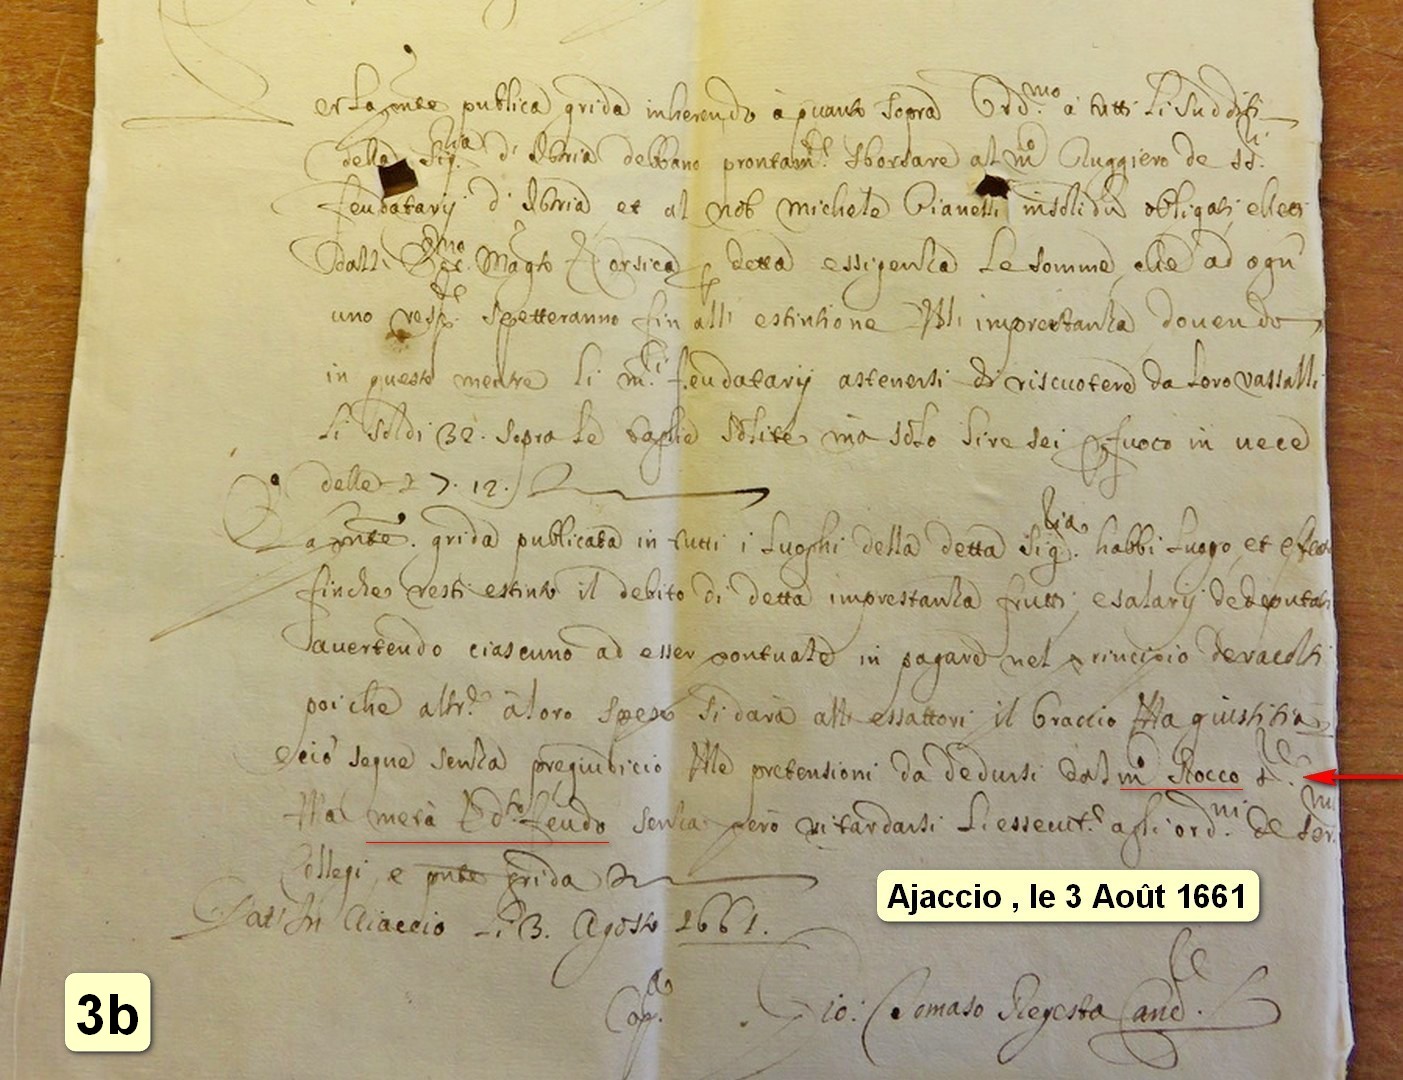 er La pnte publica grida inherendo à quanto sopra Ord.mo à tutti Li sudditi
della Sig.ria d'Istria debbano prontam.te sborsare al m.co Ruggiero de ss.ri
feudatarij d'Istria et al nob Michele Gianetti insolidū obligati eletti
dalli Mag.to Corsica detta essigenza Le somme che ad ogn'
uno resp.te spetteranno fin alli estintione imprestanza dovendo
in questo mentre Li m.ci feudatarij astenersi di riscuotere da Loro vassalli
Li soldi 32. sopra Le taglie solite mà solo Lire sei fuoco in vece
delle 7.12.
La pnte. grida publicata in tutti i Luoghi della detta Sig.ria habbi Luogo, et
finche resti estinto il debito di detta imprestanza frutti, e salarij de deputati
avertendo ciascuno ad esser pontuale in pagare nel principio de racolti
poiche altr.te à Loro spese si darà alli essattori il braccio giustitia
e ciò segue senza pregiudicio pretensioni da dedursi dal m.co Rocco
metà d.to feudo senza però ritardarsi L'essecut.e agli ord.ni de Ser.mi
Collegi, e pnte grida
Dat. In Aiaccio Li 3. Agosto 1661.
Gio: Tomaso Canc.re
Ajaccio , le 3 Août 1661
3b